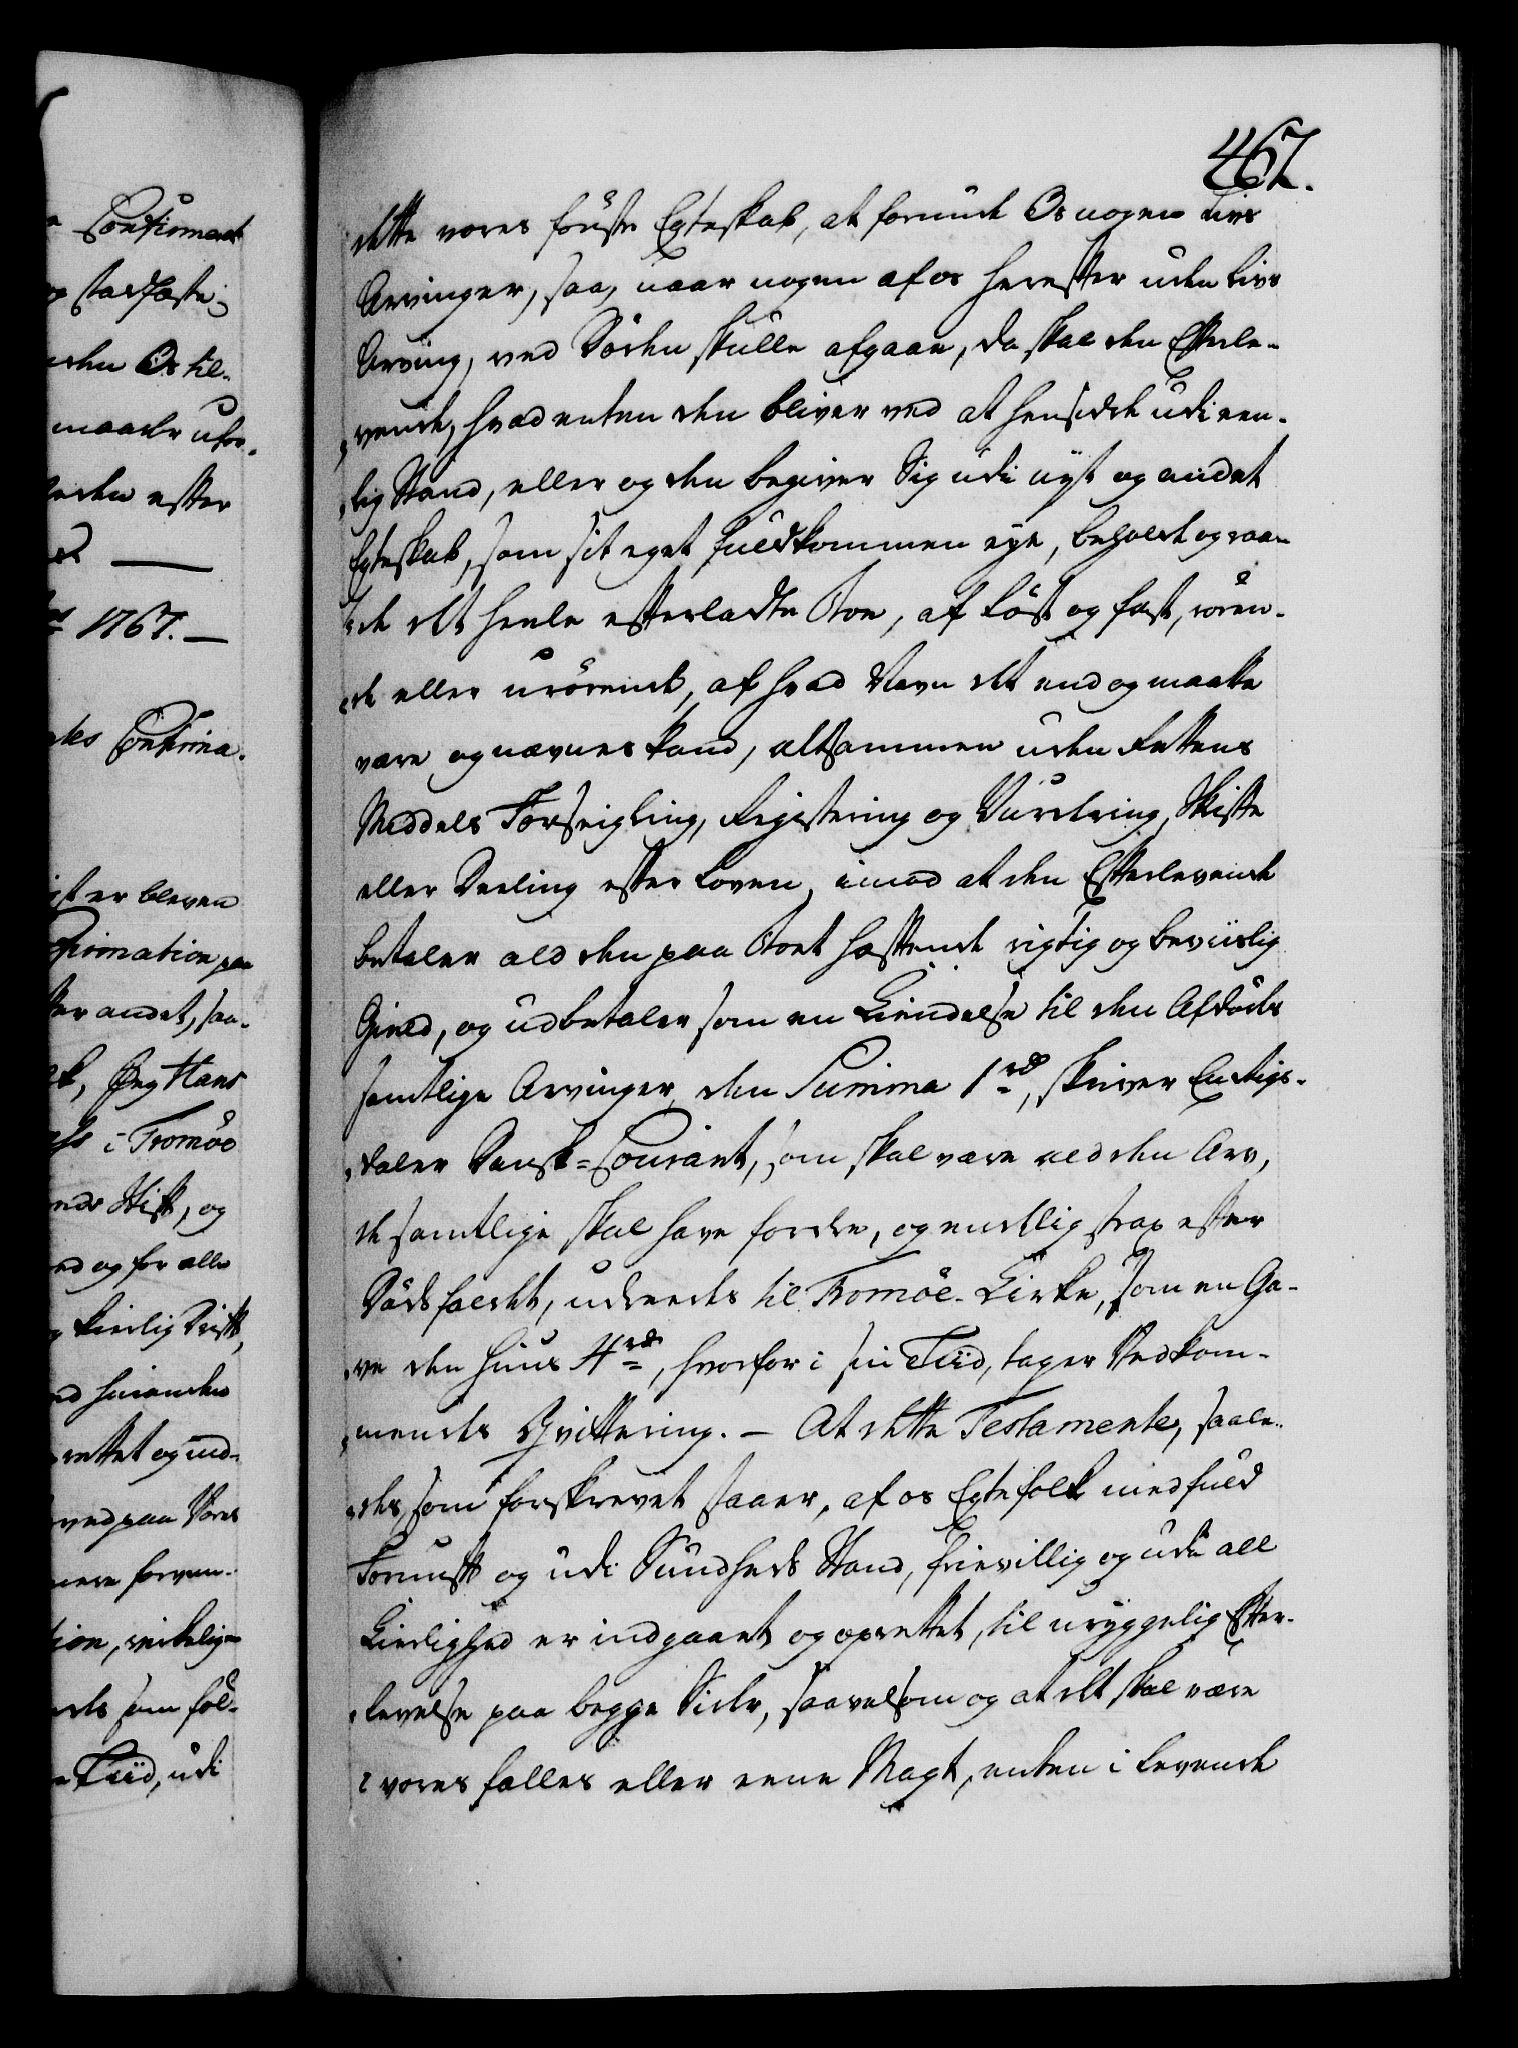 Confirmeret
stadfæste;
Os til-
maader ufor-
efter
1767.
Confirma-
er bleven
Confirmation paa
andet, saa-
Jeg Hans
i Tromøe
Stift, og
og for alle
kierlig Drift,
hinanden
rettet og ind-
paa Vores
virkelig
som føl-
Tiid, udi
467.
dette vores første Egteskab, at forunde Os nogen Livs
Arvinger, saa, naar nogen af os herefter uden Livs
Arving, ved Døden skulle afgaae, da skal den Efterle-
vende, hvad enten den bliver ved at hensidde udi een-
lig Stand, eller og den begiver Sig udi nyt og andet
Egteskab, som sit eget fuldkommen eye, beholde og raa-
de det heele efterladte Boe, af løst og fast, røren-
de eller urørende, af hvad Navn det end og maatte
være og nævnes kand, altsammen uden Rettens
Middels Forseigling, Registering og Vurdering, Skifte
eller Deeling efter Loven, imod at den Efterlevende
betaler ald den paa Boet hæftende rigtig og beviislig
Gield, og udbetaler som en Kiendelse til den Afdødes
samtlige Arvinger, den Summa 1 rd, skriver En Rigs-
daler Dansk Courant, som skal være ald den Arv,
de samtlige skal have fordre, og endelig strax efter
Dødsfaldet, udreedes til Tromøe Kirke, som en Ga-
ve den Summa 4 rd, hvorfor i sin Tiid, tages Vedkom-
mendes Qvittering. – At dette Testamente, saale-
des, som forskrevet staaer, af os Egtefolk med fuld
Fornuft og udi Sundheds Stand, frievillig og udi all
Kierlighed er indgaaet og oprettet, til uryggelig Efter-
levelse paa begge Sider, saavelsom og at det skal være
i vores fælles eller eene Magt, enten i levende